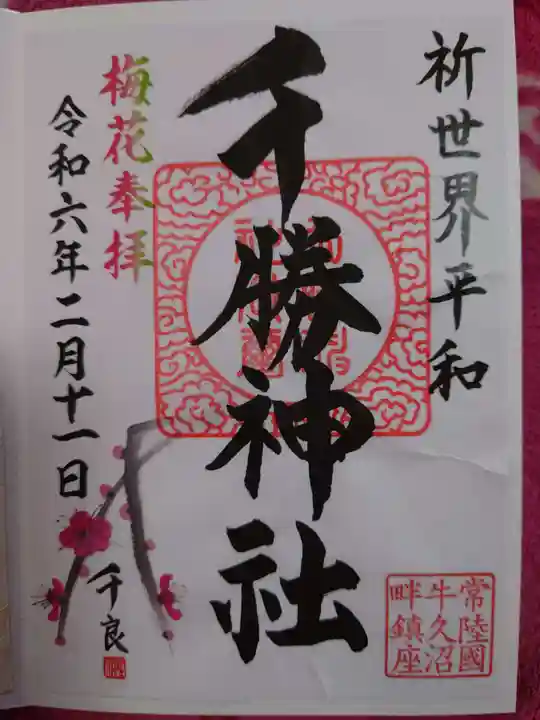 祈世界平和
千勝神社
梅花奉拝
令和六年二月十一日
千良
常陸國
牛久沼
畔鎮座